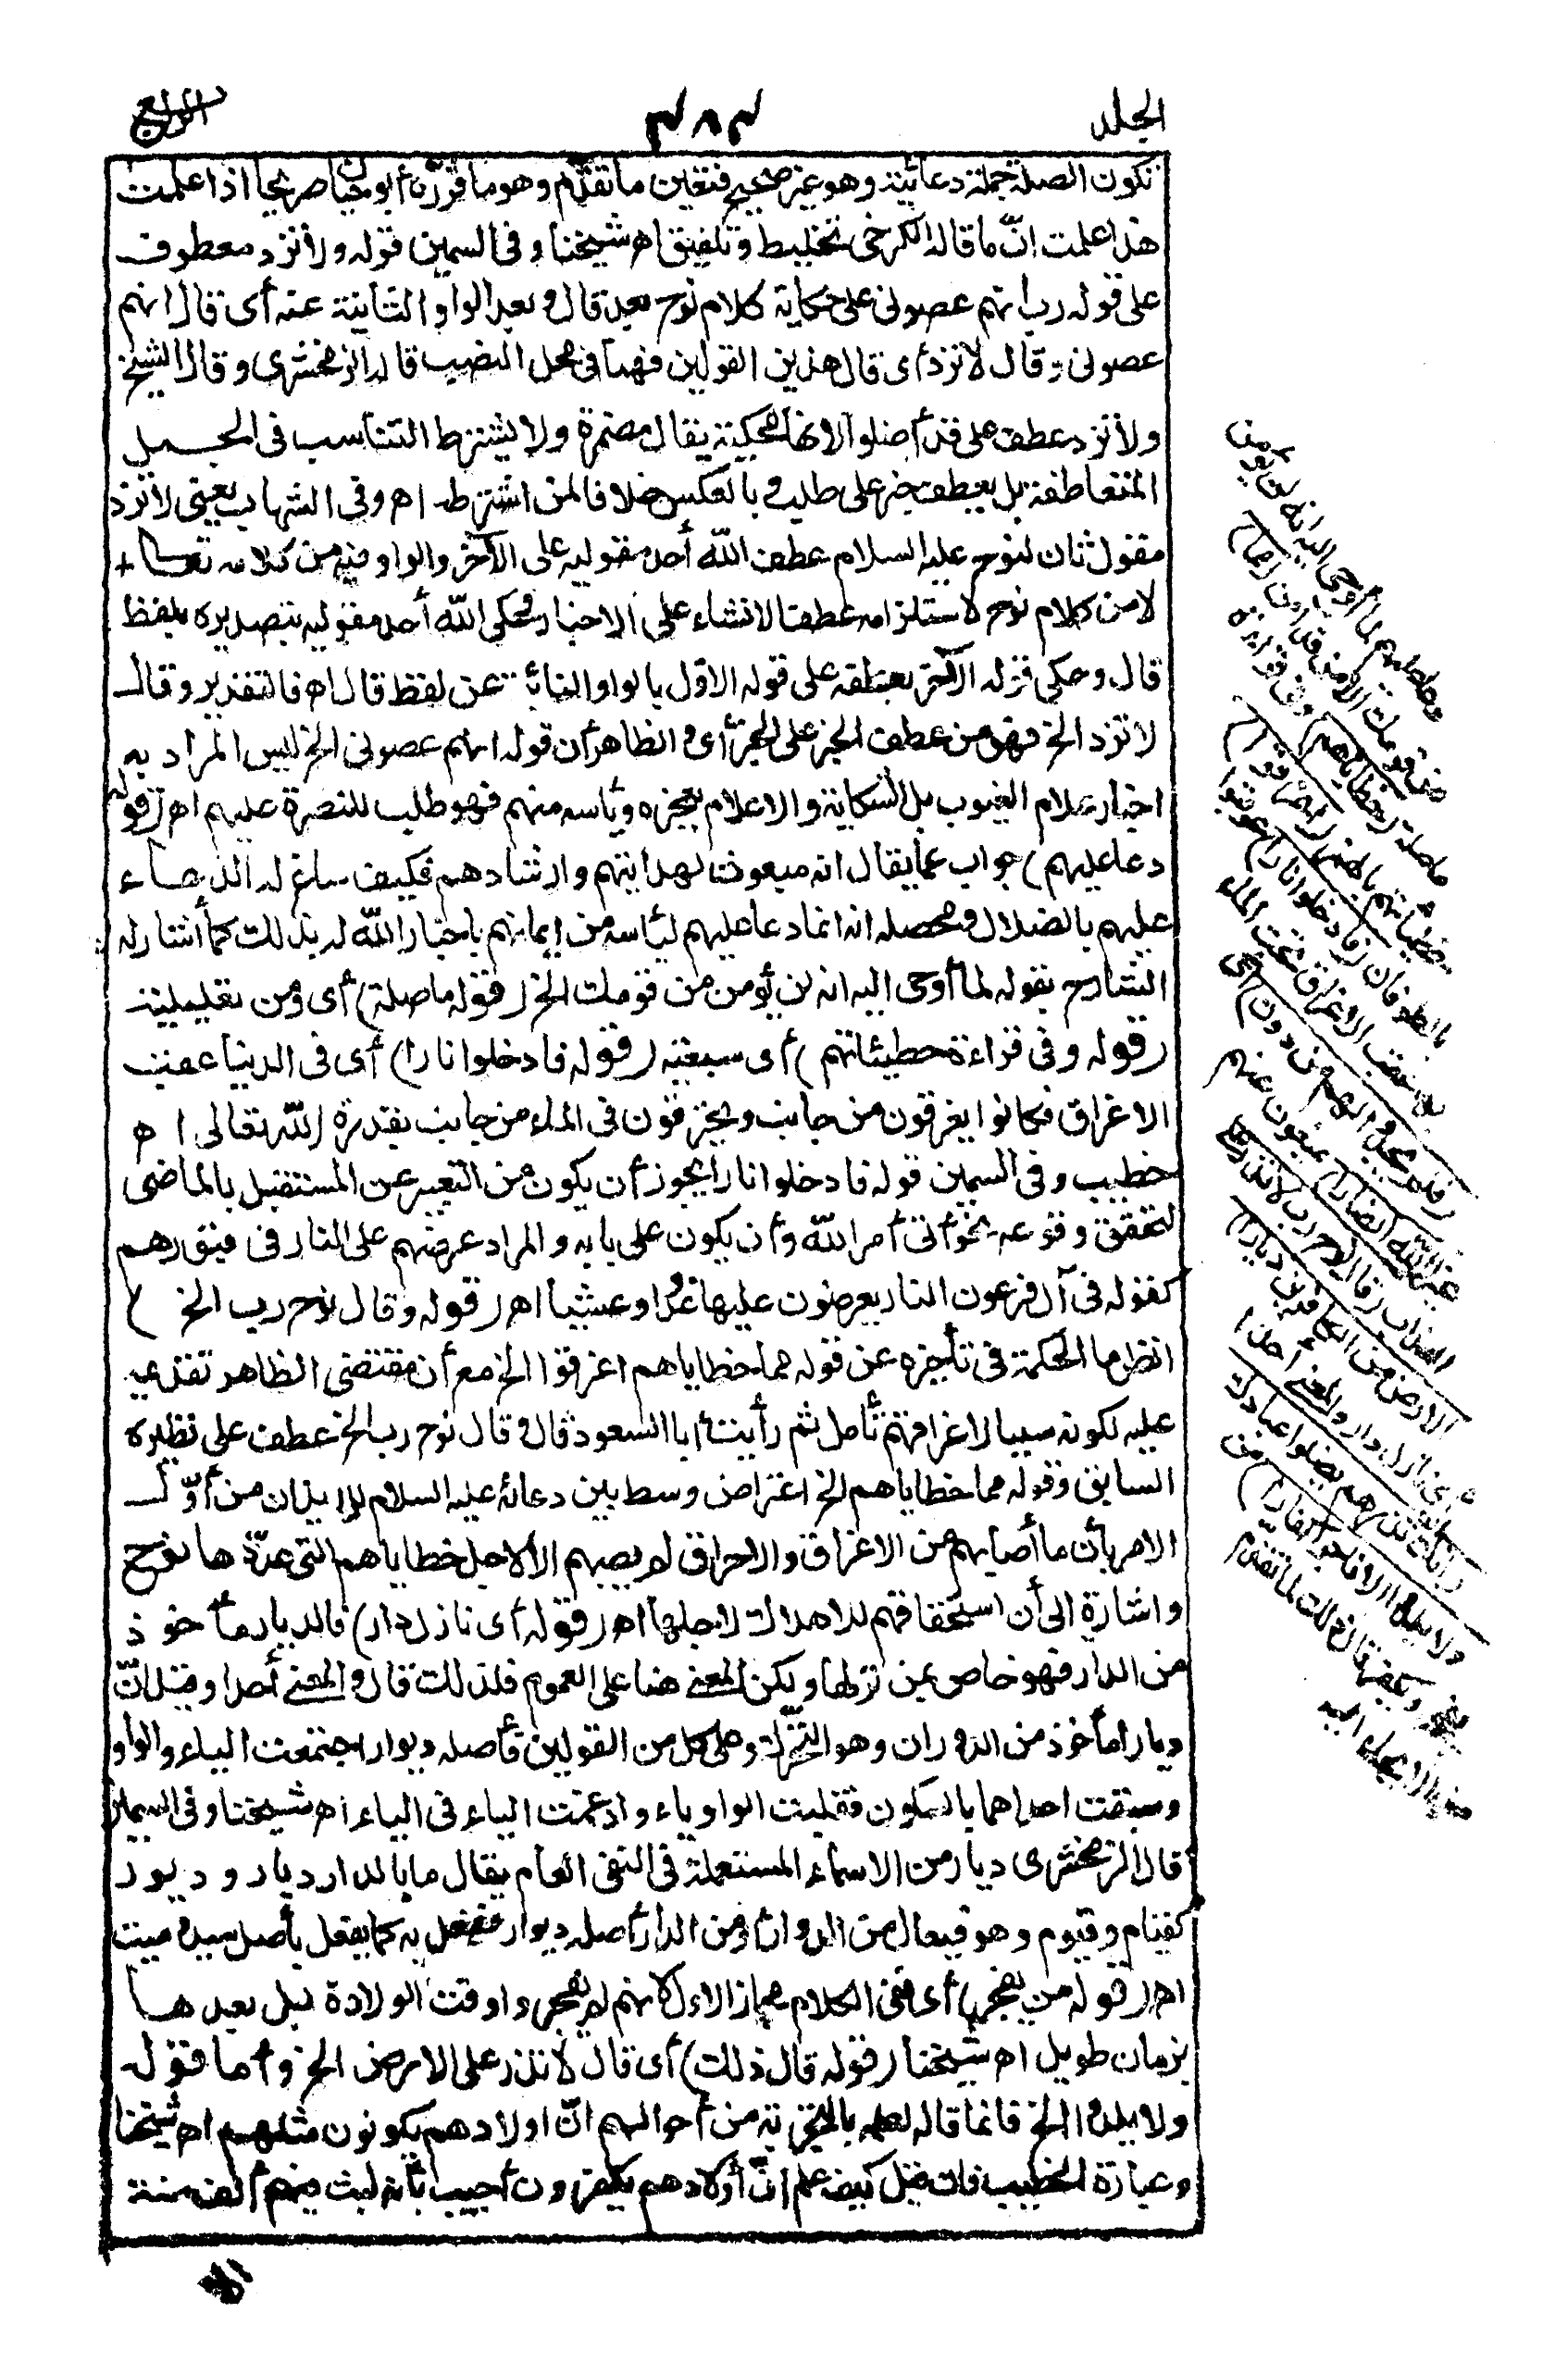 الجلد
٣٨٣
الرابع
تكون الصلة جملة دعائية وهو غير صحيح فتعين ما تقدم وهو ما قرره أبو حيان صريحا اذا علمت
هذا علمت انّ ما قاله الكرخى تخليط وتلفيق اه شيخنا وفى السمين قوله ولا تزد معطوف
على قوله رب انهم عصونى على حكاية كلام نوح بعد قال وبعد الواو النائبة عنه أى قال انهم
عصونى وقال لا تزد أى قال هذين القولين فهما فى محل النصب قاله الزمخشرى وقال الشيخ
ولا تزد عطف على قد أضلوا لانها محكية بقال مضمرة ولا يشترط التناسب فى الجمل
المتعاطفة بل يعطف خبر على طلب وبالعكس خلافا لمن اشترط اه وفى الشهاب يعنى لا تزد
مقول ثان لنوح عليه السلام عطف اللّه أحد مقوليه على الآخر والواو فيه من كلامه تعالى
لا من كلام نوح لاستلزامه عطف الانشاء على الاخبار فحكى اللّه أحد مقوليه بتصديره بلفظ
قال وحكى قوله الآخر بعطفه على قوله الاوّل بالواو النائبة عن لفظ قال اه فالتقدير وقال
لا تزد الخ فهو من عطف الخبر على الخبر أى والظاهر أن قوله انهم عصونى الخ ليس المراد به
اخبار علام الغيوب بل الشكاية والاعلام بعجزه ويأسه منهم فهو طلب للنصرة عليهم اه (قوله
دعا عليهم) جواب عما يقال انه مبعوث لهدايتهم وارشادهم فكيف ساغ له الدعاء
عليهم بالضلال ومحصله انه انما دعا عليهم ليأسه من إيمانهم باخبار اللّه له بذلك كما أشار له
الشارح بقوله لما أوحى اليه انه لن يؤمن من قومك الخ (قوله ما صلة) أى ومن تعليلية
(قوله وفى قراءة خطيئاتهم) أى سبعية (قوله فادخلوا نارا) أى فى الدنيا عقب
الاغراق فكانوا يغرقون من جانب ويحترقون فى الماء من جانب بقدرة اللّه تعالى اه
خطيب وفى السمين قوله فادخلوا نارا يجوز أن يكون من التعبير عن المستقبل بالماضى
لتحقق وقوعه نحو أتى أمر اللّه وأن يكون على بابه والمراد عرضهم على النار فى قبورهم
كقوله فى آل فرعون النار يعرضون عليها غدوا وعشيا اه (قوله وقال نوح رب الخ)
انظر ما الحكمة فى تأخيره عن قوله مما خطاياهم اغرقوا الخ مع أن مقتضى الظاهر تقديمه
عليه لكونه سببا لاغراقهم تأمل ثم رأيت أبا السعود قال وقال نوح رب الخ عطف على نظيره
السابق وقوله مما خطاياهم الخ اعتراض وسط بين دعائه عليه السلام للايذان من أوّل
الامر بأن ما أصابهم من الاغراق والاحراق لم يصبهم الا لاجل خطاياهم التى عدّدها نوح
واشارة الى أن استحقاقهم للاهلاك لاجلها اه (قوله أى نازل دار) فالديار مأخوذ
من الدار فهو خاص بمن نزلها ولكن المعنى هنا على العموم فلذلك قال والمعنى أحدا وقيل انّ
ديارا مأخوذ من الدوران وهو التحرّك وعلى كل من القولين فأصله ديوار اجتمعت الياء والواو
وسبقت احداهما بالسكون فقلبت الواو ياء وادغمت الياء فى الياء اه شيخنا وفى السمين
قال الزمخشرى ديار من الاسماء المستعملة فى النفى العام يقال ما بالدار ديار وديور
كقيام وقيوم وهو فيعال من الدوران أو من الدار أصله ديوار ففعل به كما يفعل بأصل سيد وميت
اه (قوله من يفجر) أى ففى الكلام مجاز الاول لانهم لم يفجروا وقت الولادة بل بعدها
بزمان طويل اه شيخنا (قوله قال ذلك) أى قال لا تذر على الارض الخ وأما قوله
ولا يلدوا الخ فانما قاله لعلمه بالتجربة من أحوالهم انّ اولادهم يكونون مثلهم اه شيخنا
وعبارة الخطيب فان قيل كيف علم انّ أولادهم يكفرون أجيب بأنه لبث فيهم ألف سنة
دعا عليهم لما أوحى اليه انه لن يؤمن
من قومك الا من قد آمن (مما)
ما صلة (خطاياهم) وفى قراءة
خطيئاتهم بالهمز (اغرقوا)
بالطوفان (فادخلوا نارا) عوقبوا
بها عقب الاغراق تحت الماء
(فلم يجدوا لهم من دون) أى
غير (اللّه أنصارا) يمنعون عنهم
العذاب (وقال نوح رب لا تذر على
الارض من الكافرين ديارا)
أى نازل دار والمعنى أحدا
(انك ان تذرهم يضلوا عبادك
ولا يلدوا الا فاجرا كفارا) من
يفجر ويكفر قال ذلك لما تقدم
من الايحاء اليه